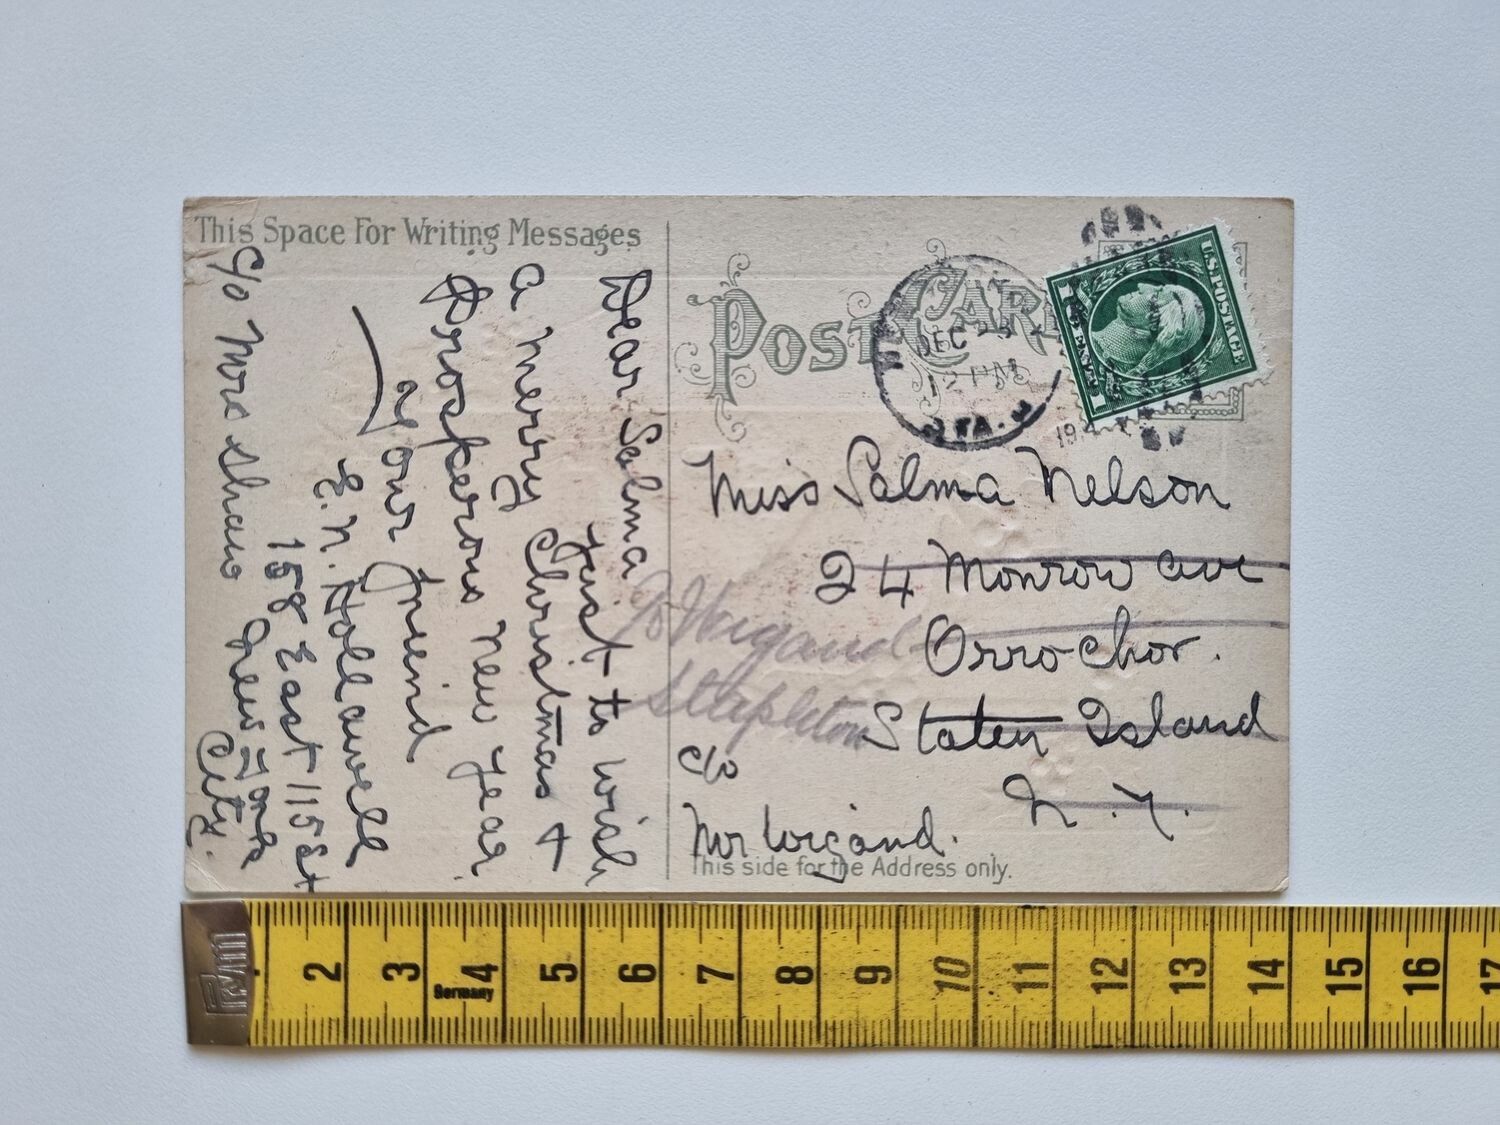 This Space For Writing Messages
Dear Salma
Just to wish
a Merry Christmas &
Prosperous New Year
Your Freind
E. N. Hollawell
158 East 115 St
New York
City.
c/o Mrs Shaw
POST CARD
DEC 23
12 PM
STA.
19
U.S. POSTAGE
1 CENT 1
Miss Salma Nelson
24 Monrow ave
Orrochor.
Staten Island
N. Y.
c/o
Mr Wigand.
Wigand
Stapleton
This side for the Address only.
2 3 4 5 6 7 8 9 10 11 12 13 14 15 16 17
Germany